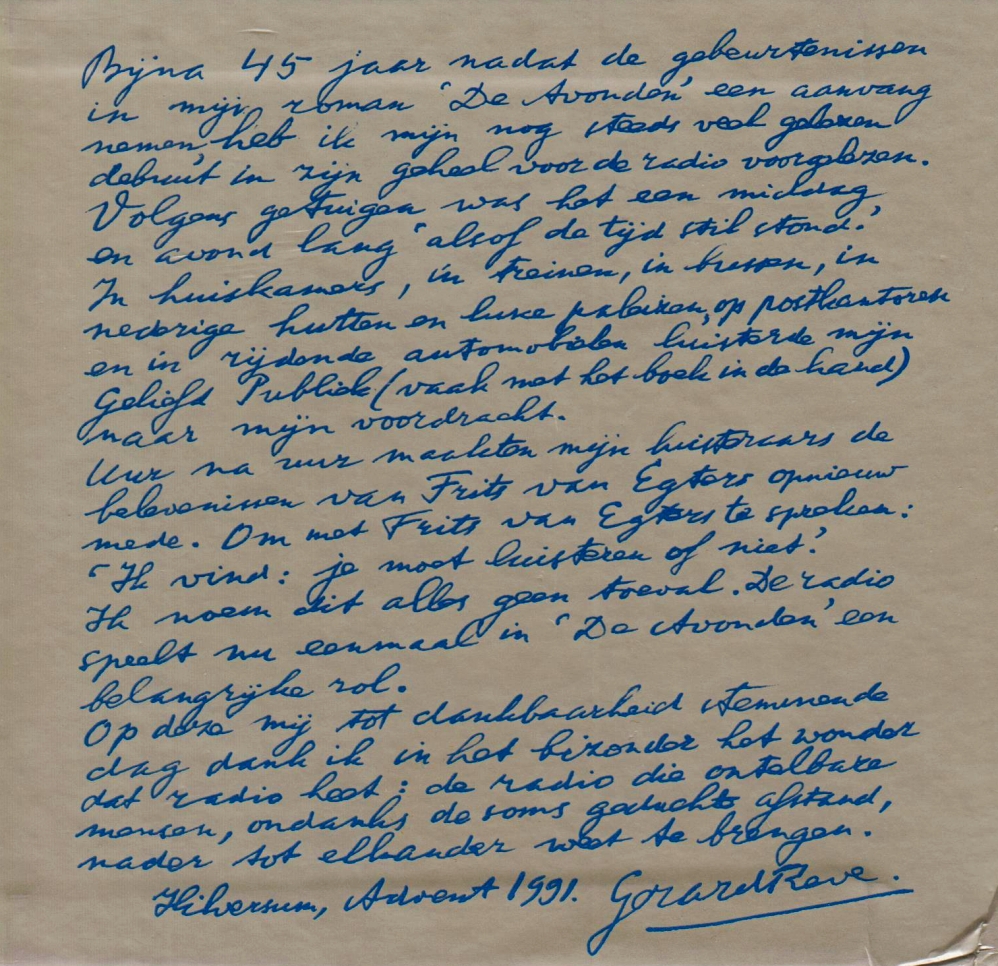 Bijna 45 jaar nadat de gebeurtenissen
in mijn roman 'De Avonden' een aanvang
nemen, heb ik mijn nog steeds veel gelezen
debuut in zijn geheel voor de radio voorgelezen.
Volgens getuigen was het een middag
en avond lang 'alsof de tijd stil stond.'
In huiskamers, in treinen, in bussen, in
nederige hutten en luxe paleizen, op postkantoren
en in rijdende automobielen luisterde mijn
Geliefd Publiek (vaak met het boek in de hand)
naar mijn voordracht.
Uur na uur maakten mijn luisteraars de
belevenissen van Frits van Egters opnieuw
mede. Om met Frits van Egters te spreken:
'Ik vind: je moet luisteren of niet.'
Ik noem dit alles geen toeval. De radio
speelt nu eenmaal in 'De Avonden' een
belangrijke rol.
Op deze mij tot dankbaarheid stemmende
dag dank ik in het bizonder het wonder
dat radio heet: de radio die ontelbare
mensen, ondanks de soms geduchte afstand,
nader tot elkander weet te brengen.
Hilversum, Advent 1991. Gerard Reve.